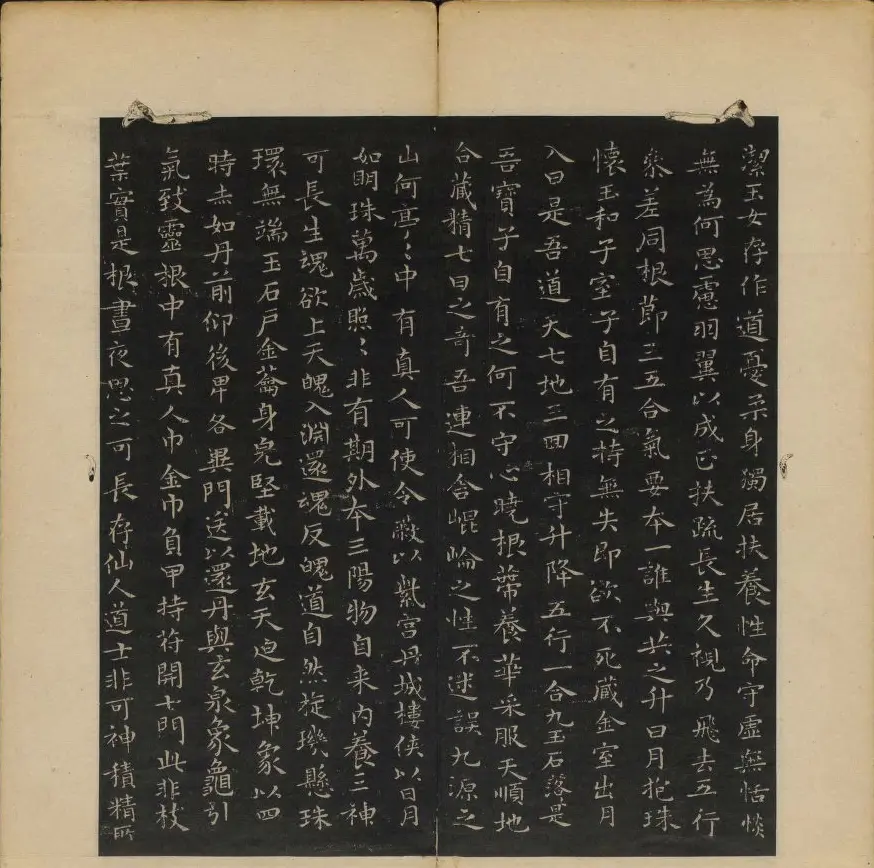 潔玉女存作道憂柔身獨居扶養性命守虛無恬惔
無為何思慮羽翼以成正扶疏長生久視乃飛去五行
參差同根節三五合氣要本一誰與共之升日月抱珠
懷玉和子室子自有之持無失即欲不死藏金室出月
入日是吾道天七地三回相守升降五行一合九玉石落是
吾寶子自有之何不守心曉根蔕養華采服天順地
合藏精七日之奇吾連相舍崐崘之性不迷誤九源之
山何亭〻中有真人可使令蔽以紫宮丹城樓俠以日月
如明珠萬歲照〻非有期外本三陽物自来内養三神
可長生魂欲上天魄入淵還魂反魄道自然旋璣懸珠
環無端玉石戶金蘥身完堅載地玄天迫乾坤象以四
時赤如丹前仰後卑各異門送以還丹與玄泉象龜引
氣致靈根中有真人巾金巾負甲持符開七門此非枝
葉實是根晝夜思之可長存仙人道士非可神積精所